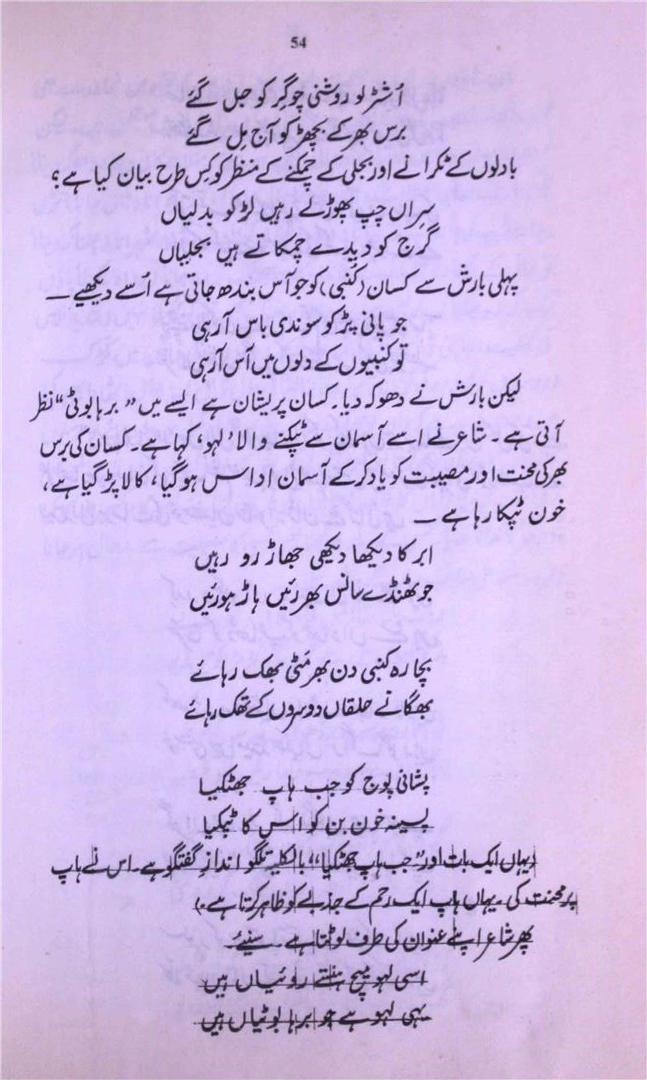 54
اُشٹر لو روشنی چوگِر کو جل گئے
برس بھر کے بچھڑ کو آج مِل گئے
بادلوں کے ٹکرانے اور بجلی کے چمکنے کے منظر کو کس طرح بیان کیا ہے؟
سراں چپ پھوڑتے رہیں لڑ کو بدلیاں
گرج کو دیدے چمکاتے ہیں بجلیاں
پہلی بارش سے کسان (کنبی) کو جو آس بندھ جاتی ہے اُسے دیکھیے ــ
جو پانی پڑ کو سوندی باس آ رہی
تو کنبیوں کے دلوں میں آس آ رہی
لیکن بارش نے دھوکہ دیا۔ کسان پریشان ہے ایسے میں ”بربابوٹی“ نظر
آتی ہے۔ شاعر نے اسے آسمان سے ٹپکنے والا ’لہو‘ کہا ہے۔ کسان کی برس
بھر کی محنت اور مصیبت کو یاد کر کے آسمان اداس ہوگیا، کالا پڑ گیا ہے،
خون ٹپکا رہا ہے ــ
ابر کا دیکھا دیکھی جھاڑ رو رہیں
جو ٹھنڈے سانس بھررئیں ہاڑ ہورئیں
بچارہ کنبی دن بھر مٹی پھک رہائے
بھگاتے حلقاں دوسروں کے تھک رہائے
پشانی پوج کو جب ہاپ جھٹکیا
پسینہ خون بن کو اس کا ٹپکیا
(یہاں ایک بات اور ”جب ہاپ جھٹکیا“ بالکلیہ تلگو اندازِ گفتگو ہے۔ اس نے ہاپ
پر محنت کی۔ یہاں ہاپ ایک رحم کے جذبے کو ظاہر کرتا ہے۔)
پھر شاعر اپنے عنوان کی طرف لوٹتا ہے۔ سنیے۔
اسی لہو میچ ہنستے روئیاں ہیں
یہی لہو ہے جو بربا بوٹیاں ہیں